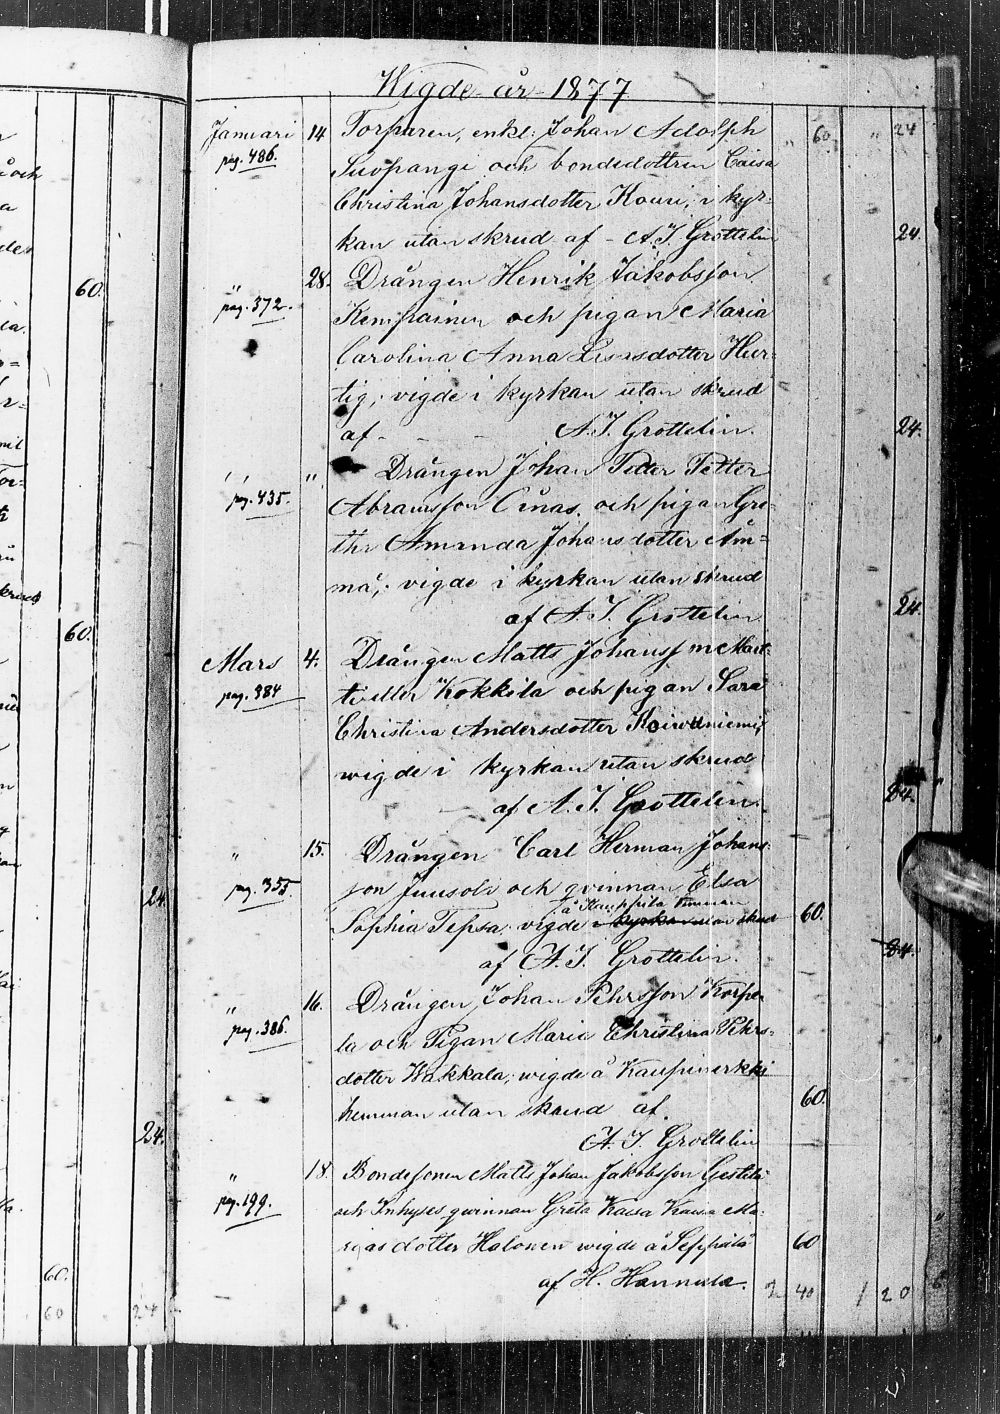 Wigde år 1877
Januari 14. Torparen, enkl. Johan Adolph 60 " 24
pag. 486. Suopangi och bondedottren Caisa
Christina Johansdotter Kouri, i kyr-
kan utan skrud af - A. I. Grottelin 24.
" 28. Drängen Henrik Jakobsson
pag. 372. Kempainen och pigan Maria
Carolina Anna Larsdotter Hur-
tig, vigde i kyrkan utan skrud
af - - - A. I. Grottelin. 24.
" " Drängen Johan Petter Petter
pag. 435. Abramsson och pigan Gre-
tha Amanda Johansdotter Äm-
mä, vigde i kyrkan utan skrud
af A. I. Grottelin 24.
Mars 4. Drängen Matts Johansson Mart-
pag. 384 tieller Kokkila och pigan Sara
Christina Andersdotter Koivuniemi,
wigde i kyrkan utan skrud
af A. I. Grottelin. 24.
" 15. Drängen Carl Herman Johans-
pag. 355 son Juusola och qvinnan Elsa
å Kauppila hemman
Sophia Tepsa, vigde i kyrkan utan skrud 60.
af A. I. Grottelin. 24.
" 16. Drängen Johan Pehrsson Korpe-
pag. 386. la och Pigan Maria Christina Pehrs-
dotter Wakkala, wigde å
hemman utan skrud af. 60.
A. I. Grottelin
" 18. Bondesonen Matts Johan Jakobsson
pag. 199. och Inhyses qvinnan Greta Kaisa
dotter Halonen wigde å Seppälä 60
af H. Hannula. 2 40 1 20
60.
60.
24.
24.
60.
60 24